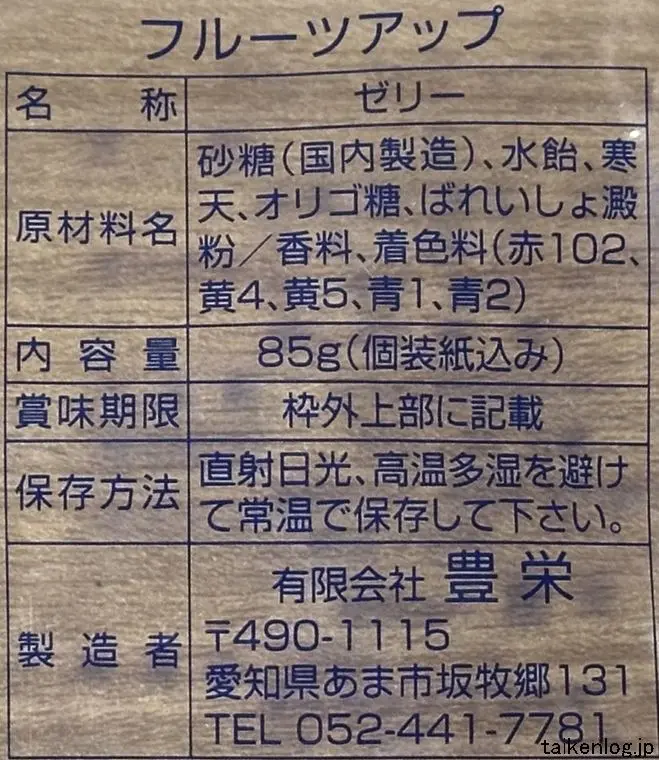 フルーツアップ
名称 ゼリー
原材料名 砂糖(国内製造)、水飴、寒
天、オリゴ糖、ばれいしょ澱
粉／香料、着色料(赤102、
黄4、黄5、青1、青2)
内容量 85g(個装紙込み)
賞味期限 枠外上部に記載
保存方法 直射日光、高温多湿を避け
て常温で保存して下さい。
製造者 有限会社 豊栄
〒490-1115
愛知県あま市坂牧郷131
TEL 052-441-7781
taikenlog.jp